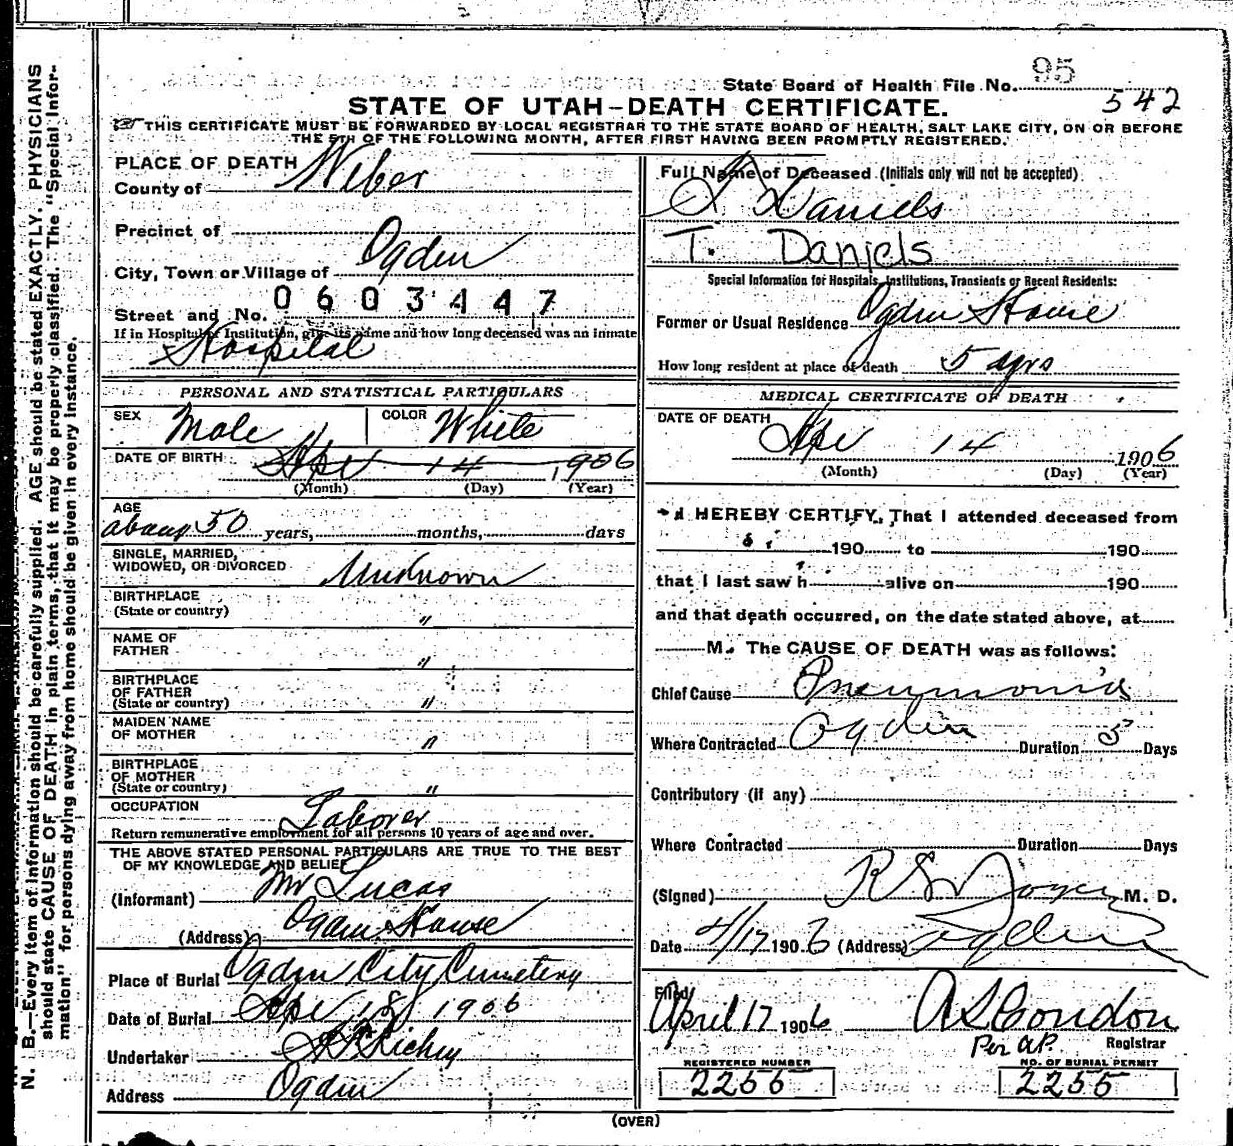 95
State Board of Health File No.
542
STATE OF UTAH-DEATH CERTIFICATE.
THIS CERTIFICATE MUST BE FORWARDED BY LOCAL REGISTRAR TO THE STATE BOARD OF HEALTH, SALT LAKE CITY, ON OR BEFORE
THE 5TH OF THE FOLLOWING MONTH, AFTER FIRST HAVING BEEN PROMPTLY REGISTERED.
PLACE OF DEATH
County of Weber
Precinct of
City, Town or Village of Ogden
0603447
Street and No.
If in Hospital or Institution, give its name and how long deceased was an inmate
Hospital
PERSONAL AND STATISTICAL PARTICULARS
SEX Male COLOR White
DATE OF BIRTH Apr 14 1906
(Month) (Day) (Year)
AGE
about 50 years, months, days
SINGLE, MARRIED,
WIDOWED, OR DIVORCED Unknown
BIRTHPLACE
(State or country) "
NAME OF
FATHER "
BIRTHPLACE
OF FATHER
(State or country) "
MAIDEN NAME
OF MOTHER "
BIRTHPLACE
OF MOTHER
(State or country) "
OCCUPATION Laborer
Return remunerative employment for all persons 10 years of age and over.
THE ABOVE STATED PERSONAL PARTICULARS ARE TRUE TO THE BEST
OF MY KNOWLEDGE AND BELIEF
(Informant) Mr Lucas
(Address) Ogden House
Place of Burial Ogden City Cemetery
Date of Burial Apr 18 1906
Undertaker Richey
Address Ogden
Full Name of Deceased (Initials only will not be accepted)
T Daniels
T. Daniels
Special Information for Hospitals, Institutions, Transients or Recent Residents:
Former or Usual Residence Ogden House
How long resident at place of death 5 yrs
MEDICAL CERTIFICATE OF DEATH
DATE OF DEATH
Apr 14 1906
(Month) (Day) (Year)
I HEREBY CERTIFY, That I attended deceased from
190 to 190
that I last saw h alive on 190
and that death occurred, on the date stated above, at
M. The CAUSE OF DEATH was as follows:
Chief Cause Pneumonia
Where Contracted Ogden Duration 5 Days
Contributory (if any)
Where Contracted Duration Days
(Signed) M. D.
Date 4/17 1906 (Address) Ogden
Filed
April 17 1906 A S Condon
Per A.P. Registrar
REGISTERED NUMBER NO. OF BURIAL PERMIT
2255 2255
(OVER)
N. B.—Every item of information should be carefully supplied. AGE should be stated EXACTLY. PHYSICIANS
should state CAUSE OF DEATH in plain terms, that it may be properly classified. The "Special Infor-
mation" for persons dying away from home should be given in every instance.